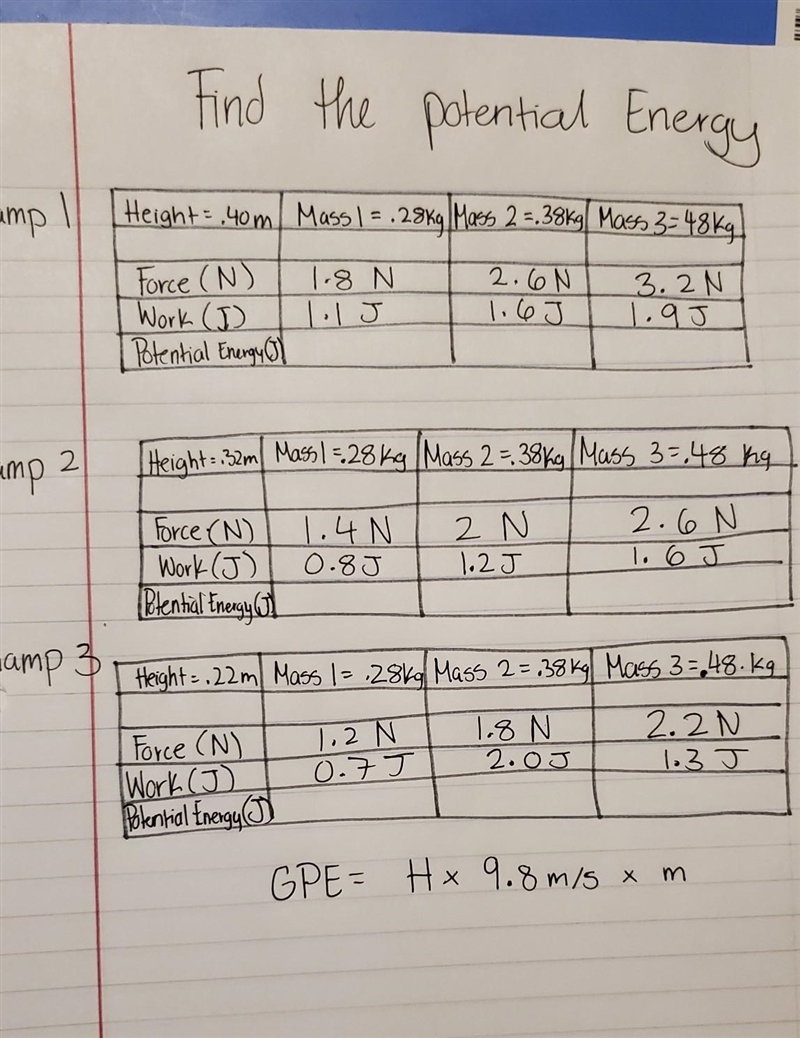 Find the potential Energy
amp 1
Height = .40m Mass 1 = .28kg Mass 2 = .38kg Mass 3 = 48kg
Force (N) 1.8 N 2.6 N 3.2 N
Work (J) 1.1 J 1.6 J 1.9 J
Potential Energy (J)
amp 2
Height = .32m Mass 1 = .28kg Mass 2 = .38kg Mass 3 = .48 kg
Force (N) 1.4 N 2 N 2.6 N
Work (J) 0.8 J 1.2 J 1.6 J
Potential Energy (J)
amp 3
Height = .22m Mass 1 = .28kg Mass 2 = .38kg Mass 3 = .48. kg
Force (N) 1.2 N 1.8 N 2.2 N
Work (J) 0.7 J 2.0 J 1.3 J
Potential Energy (J)
GPE = H x 9.8 m/s x m